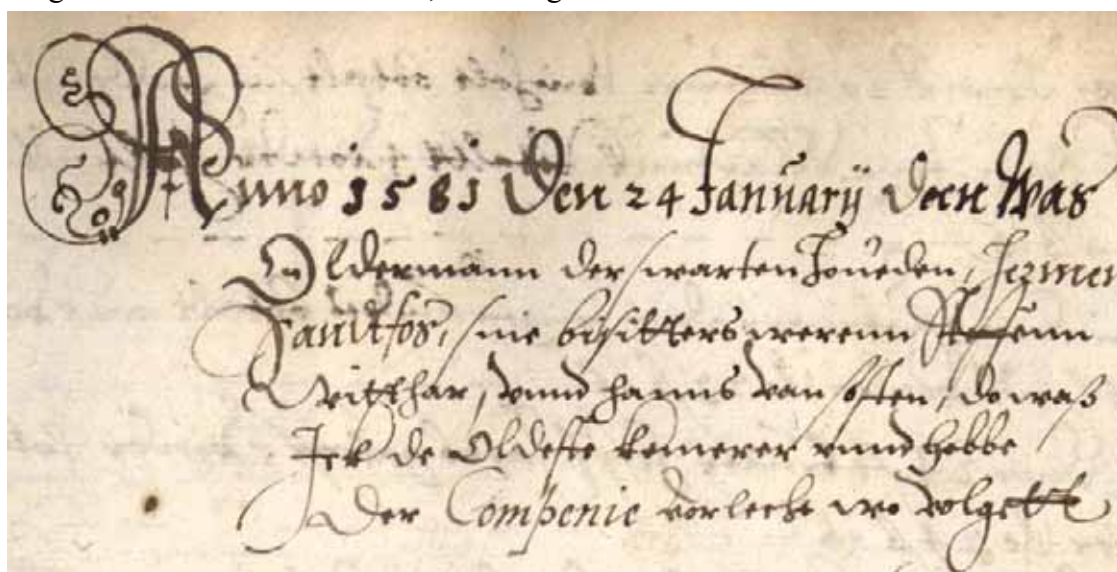 Anno 1581 Den 24 January Doen Was
Oldermann der swarten Houeden,
sine bisitters werenn Steffenn
Witthar, vnnd Hanns van Osten, do waß
Ick de Oldeste kemerer vnnd hebbe
Der Compenie vorlecht wo volgett